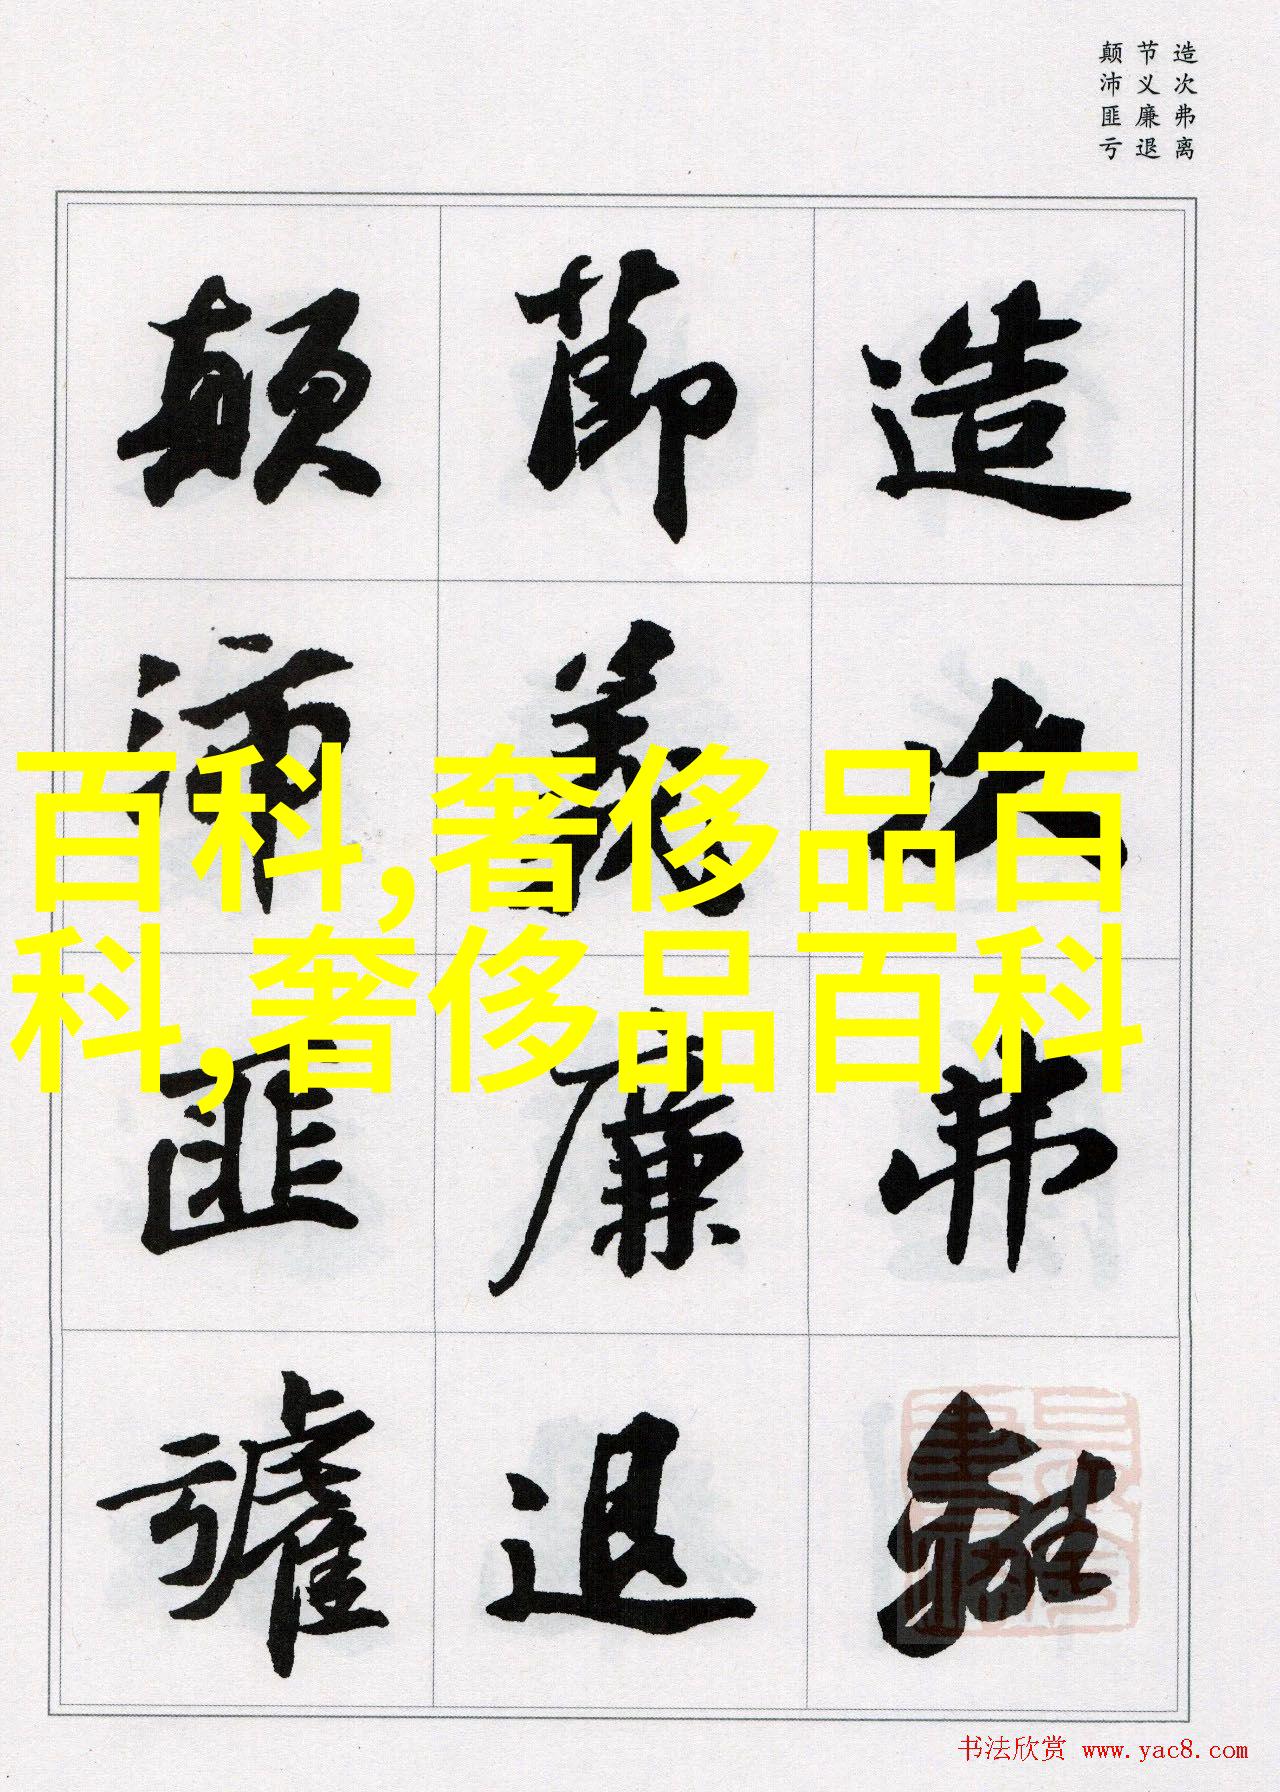 造次弗离
节义廉退
颠沛匪亏
造次弗離
節義廉退
顛沛匪虧
百科,奢侈品百
科,奢侈品百科
书法欣赏 www.yac8.com